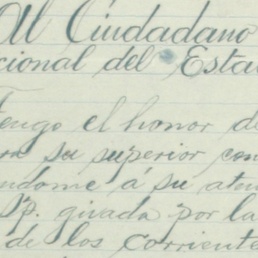 Al Ciudadano
cional del Esta
Tengo el honor de
ra su superior con
ndome á su aten
Sp. girada por la
de los corriente